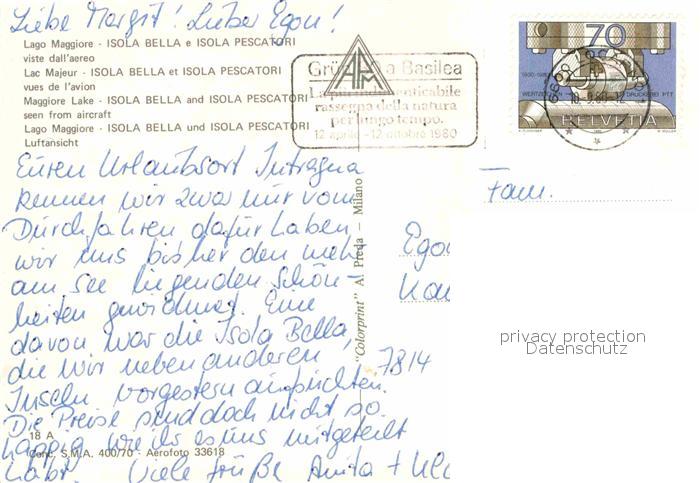 Liebe Margit! Lieber Egon!
Lago Maggiore - ISOLA BELLA e ISOLA PESCATORI
viste dall'aereo
Lac Majeur - ISOLA BELLA et ISOLA PESCATORI
vues de l'avion
Maggiore Lake - ISOLA BELLA and ISOLA PESCATORI
seen from aircraft
Lago Maggiore - ISOLA BELLA und ISOLA PESCATORI
Luftansicht
Basilea
rassegna della natura
per lungo tempo.
12 aprile - 12 ottobre 1980
70
HELVETIA
Euren Urlaubsort Intragna
kennen wir zwar nur vom
Durchfahren dafür haben
wir uns bis her den mehr
am See liegenden Schön-
heiten gewidmet. Eine
davon war die Isola Bella,
die wir neben anderen
Inseln vorgestern aufsuchten.
Die Preise sind doch nicht so
happig wie ihr es uns mitgeteilt
habt. Viele Grüße Anita +
"Colorprint" A. Preda - Milano
18 A
Conc. S.M.A. 400/70 - Aerofoto 33618
Fam.
Egon
7814
privacy protection
Datenschutz